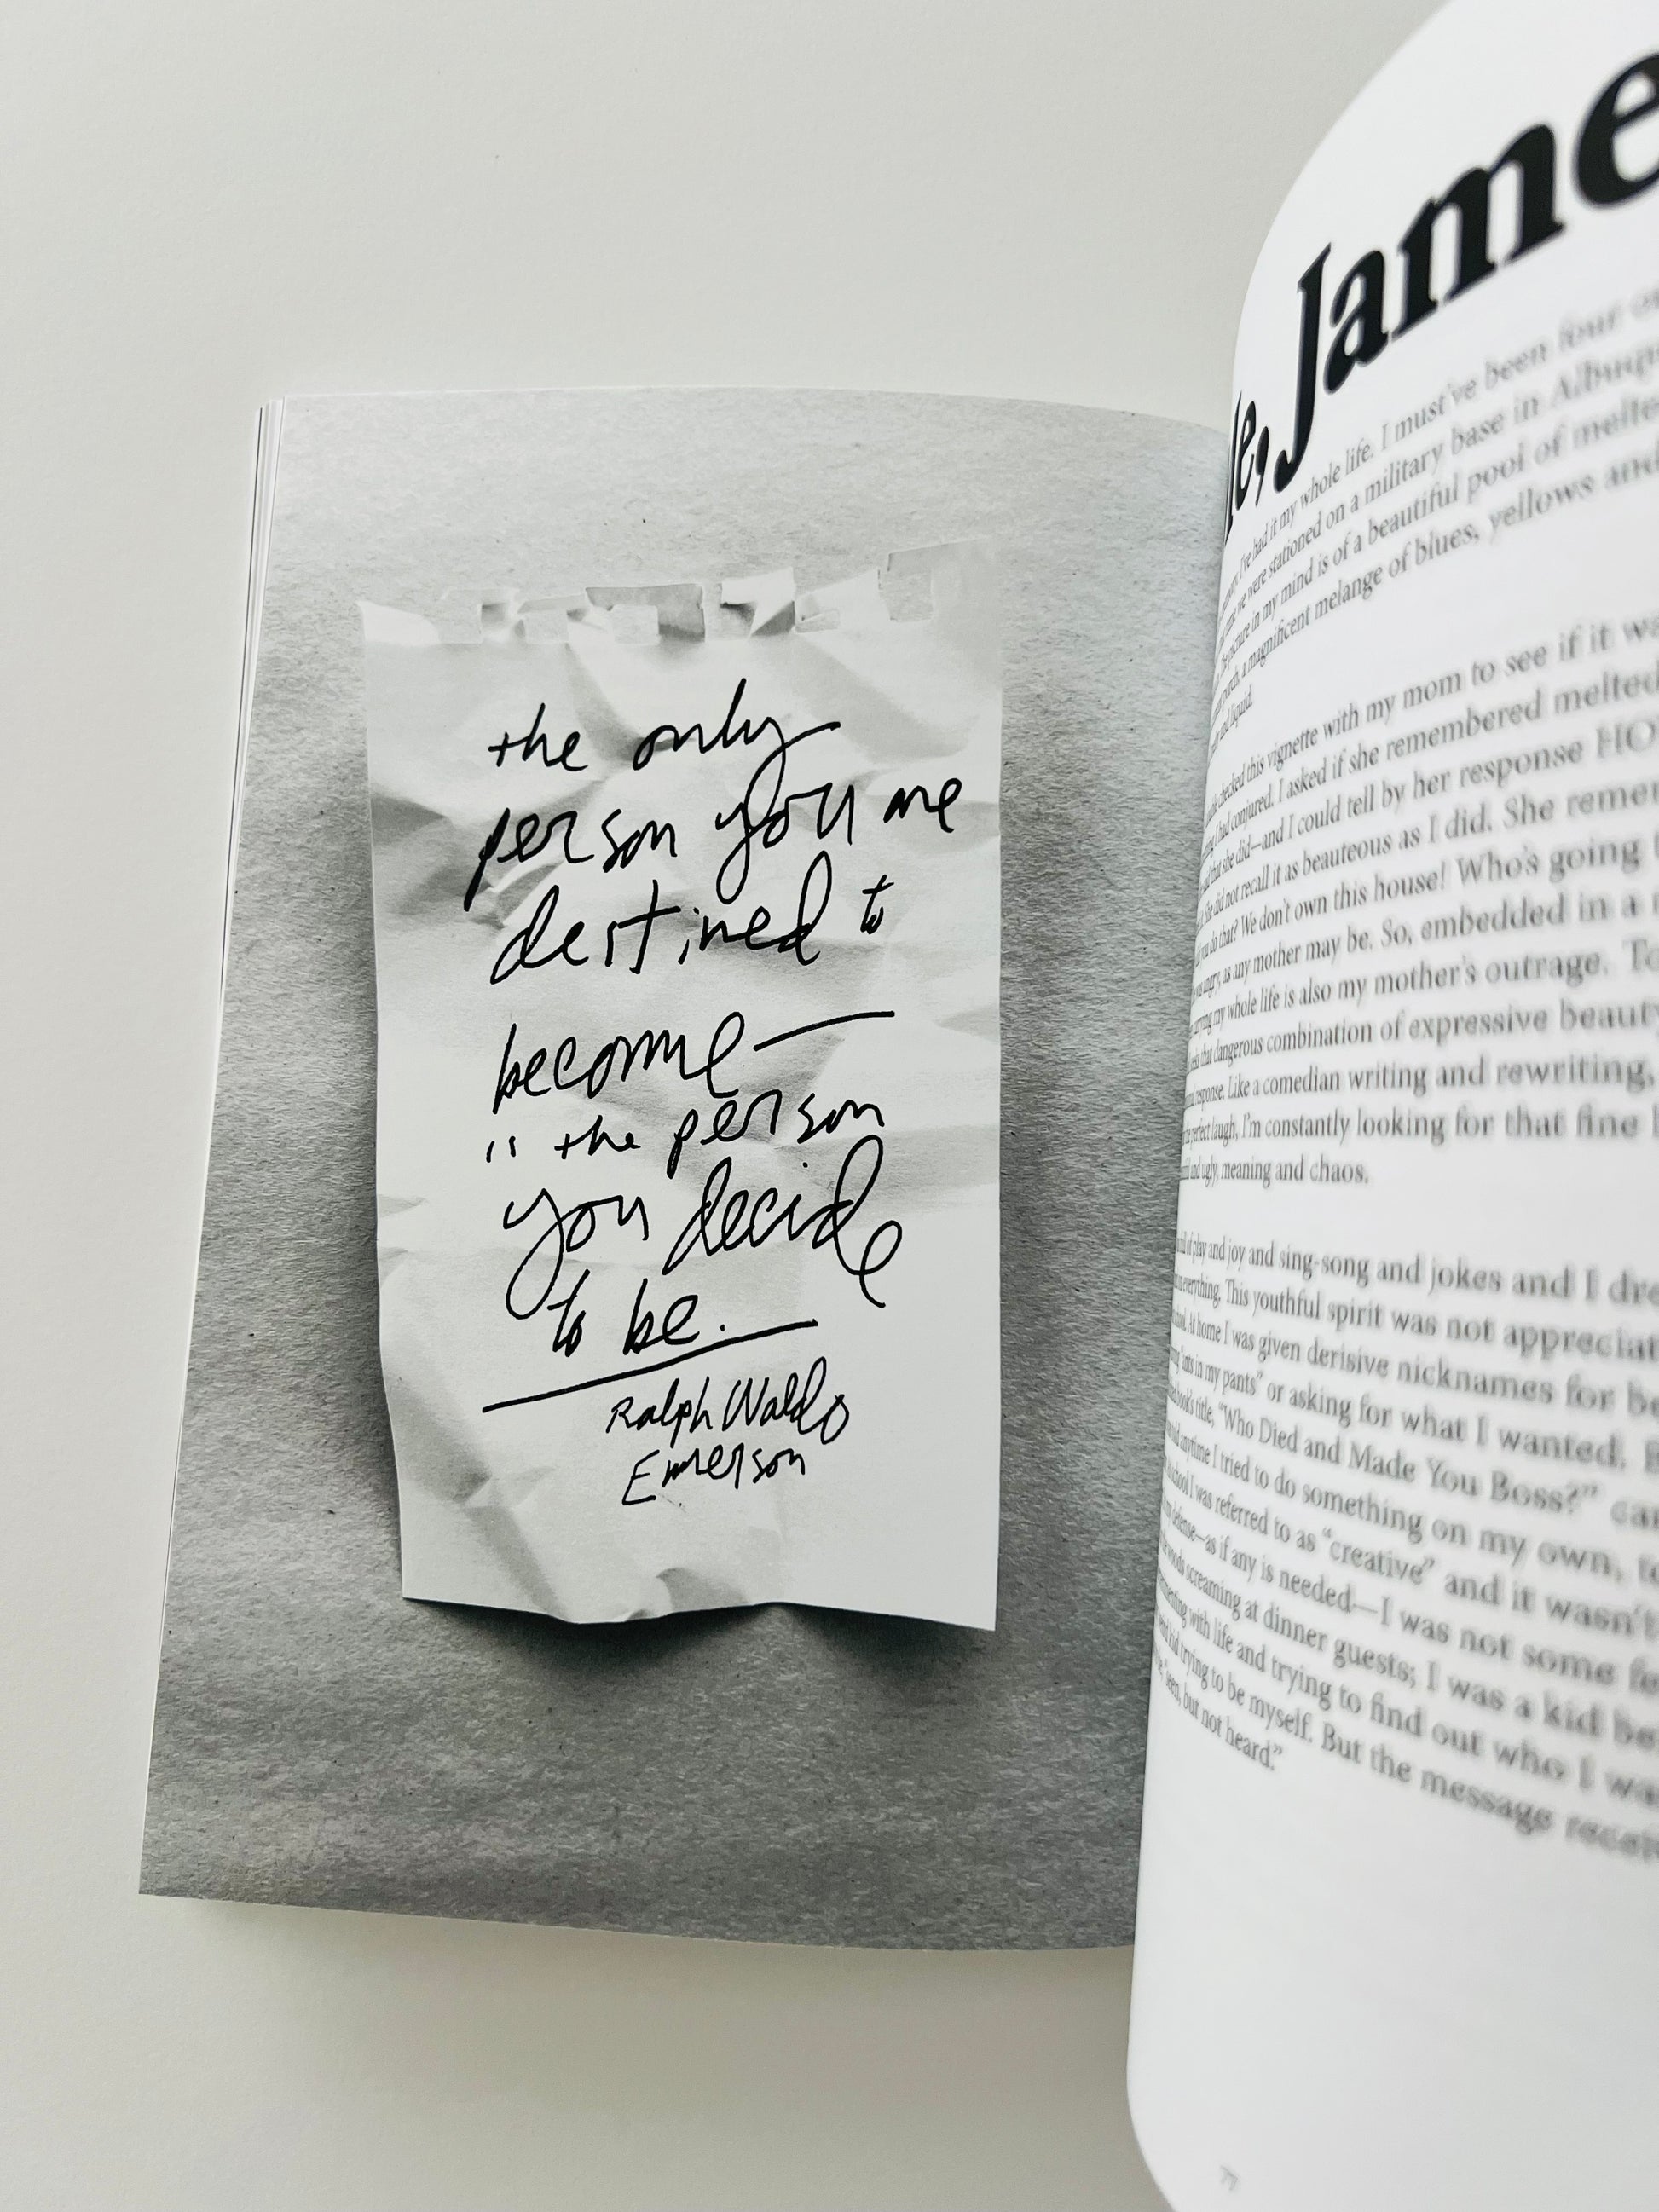 the only
person you are
destined to
become —
is the person
you decide
to be.
Ralph Waldo
Emerson
Jame
I've had it my whole life. I must've been four
we were stationed on a military base in
picture in my mind is of a beautiful pool of
a magnificent melange of blues, yellows and
and liquid.
checked this vignette with my mom to see if it
I had conjured. I asked if she remembered melted
that she did—and I could tell by her response
did not recall it as beauteous as I did. She
you do that? We don't own this house! Who's going
angry, as any mother may be. So, embedded in a
carrying my whole life is also my mother's outrage.
that dangerous combination of expressive beauty
response. Like a comedian writing and rewriting,
perfect laugh, I'm constantly looking for that fine
and ugly, meaning and chaos.
of play and joy and sing-song and jokes and I
on everything. This youthful spirit was not
At home I was given derisive nicknames for
"ants in my pants" or asking for what I wanted.
book's title, "Who Died and Made You Boss?"
anytime I tried to do something on my own,
school I was referred to as "creative" and it wasn't
defense—as if any is needed—I was not some
woods screaming at dinner guests; I was a kid
with life and trying to find out who I
kid trying to be myself. But the message
seen, but not heard."